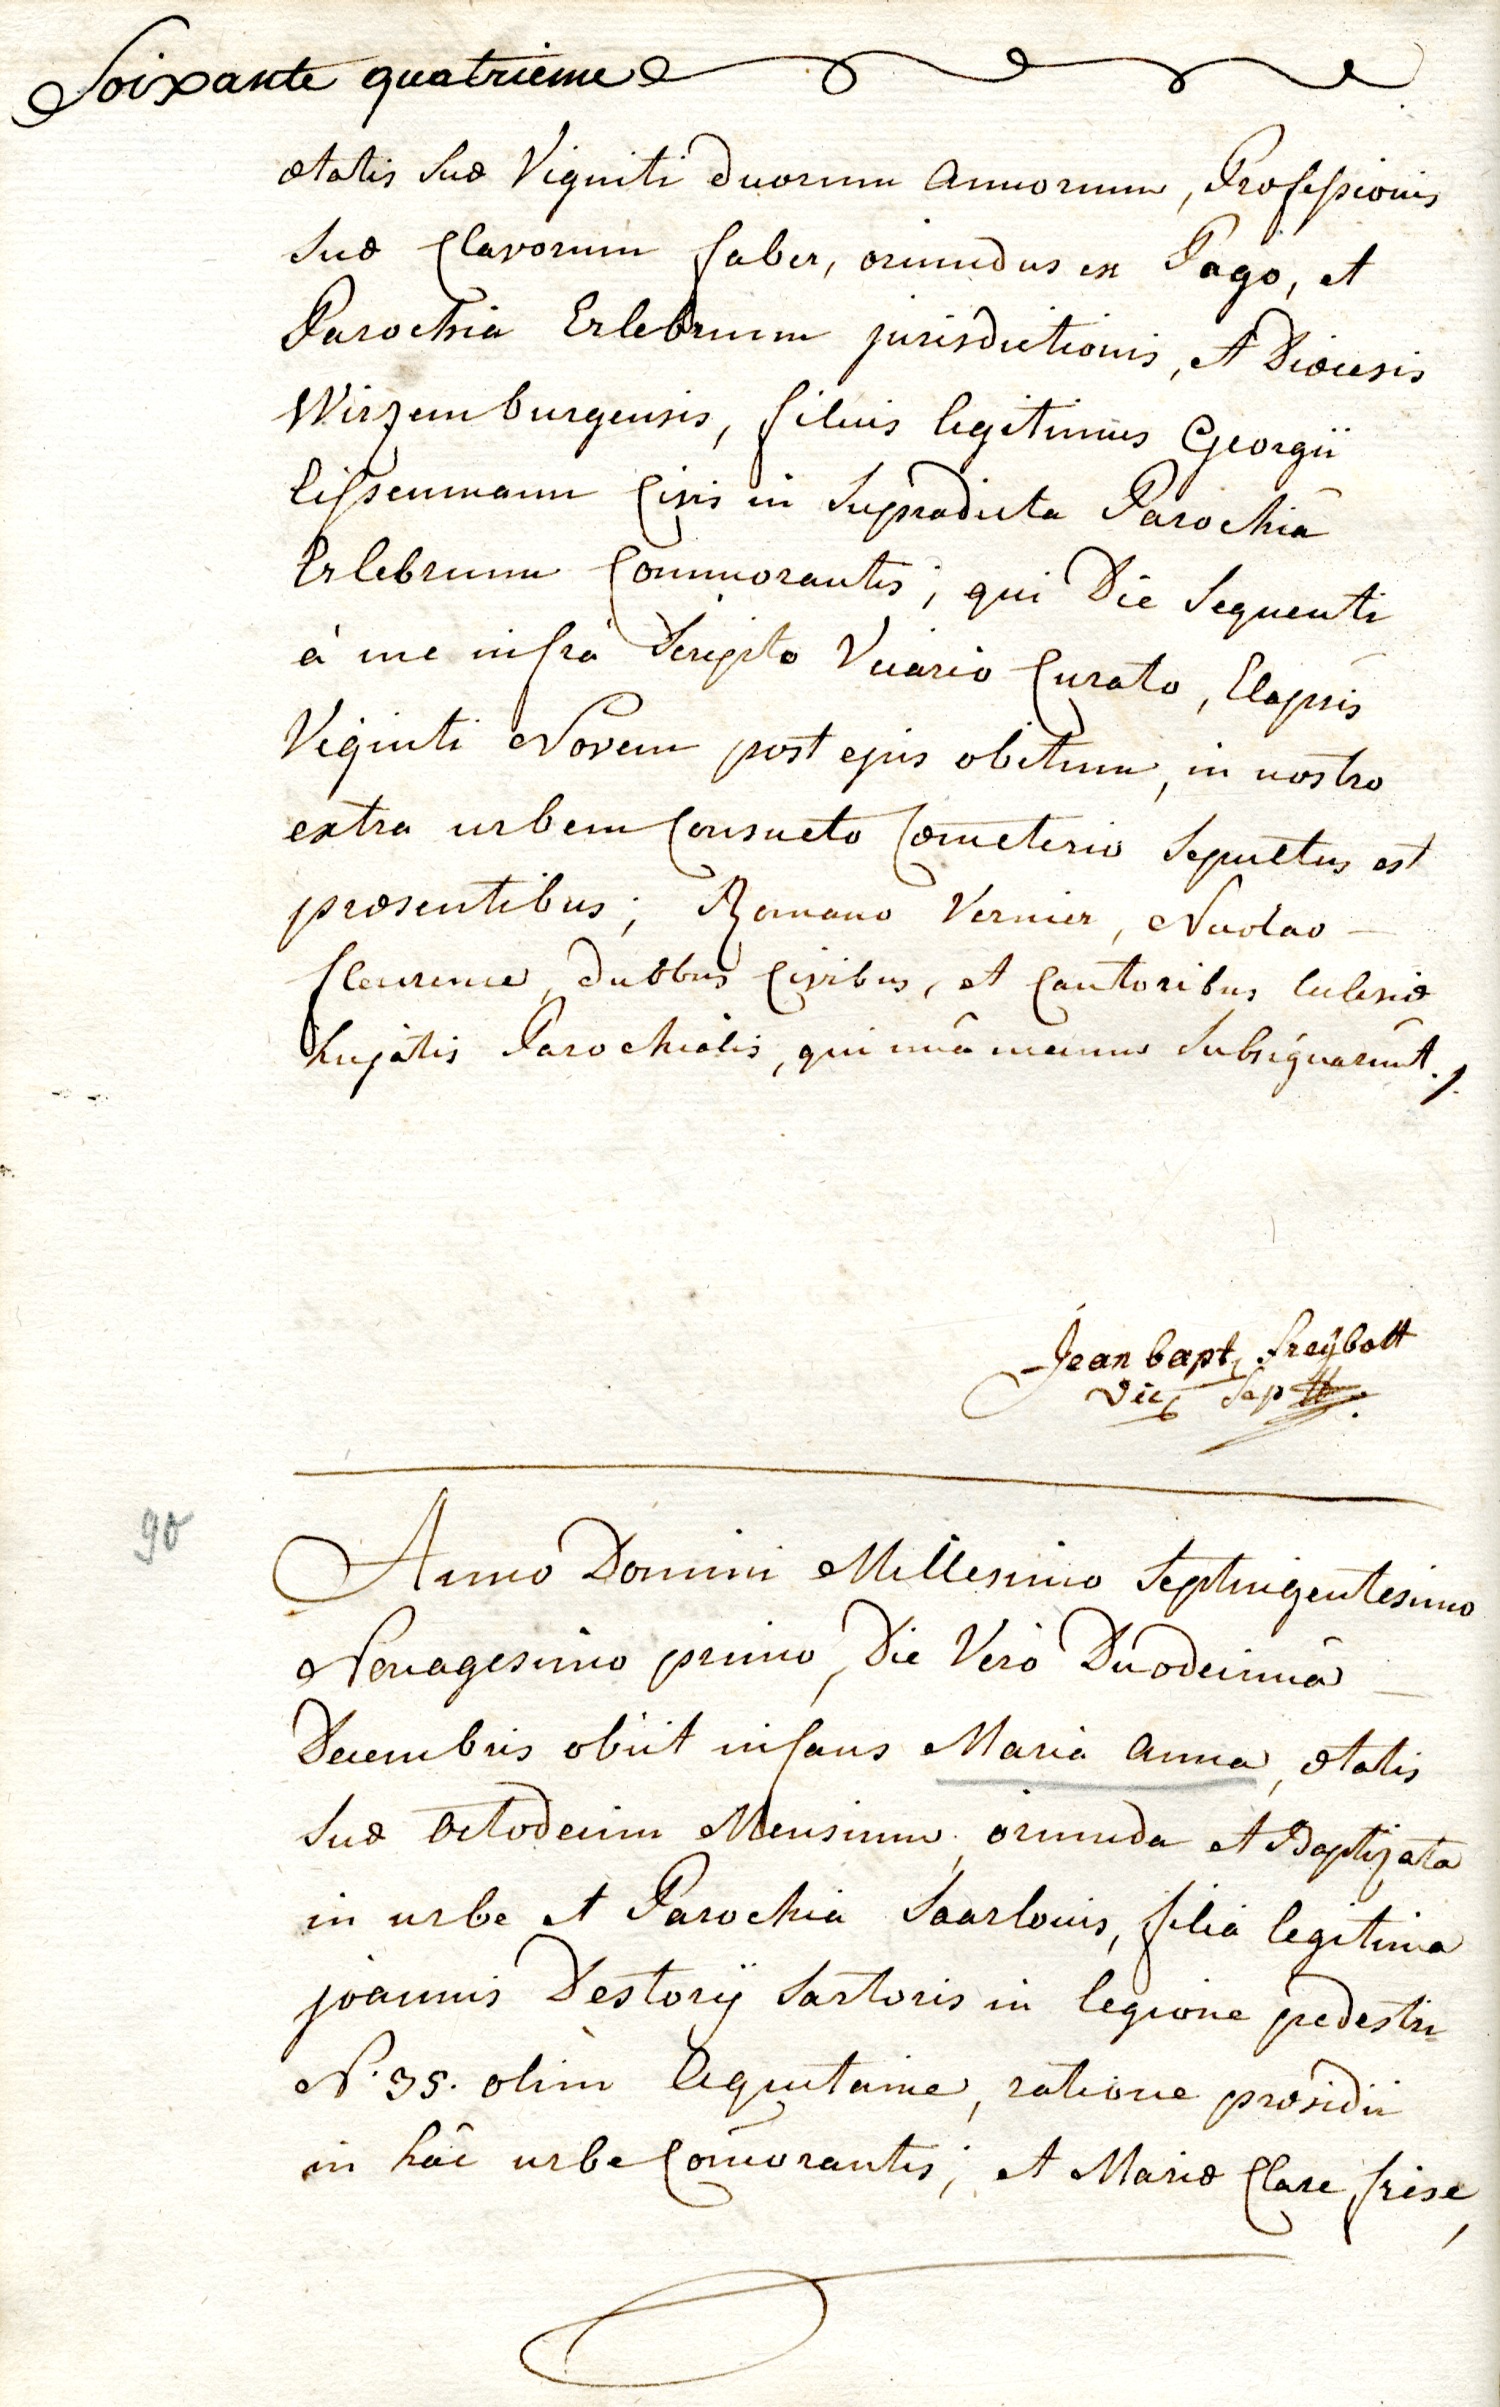 Soixante quatrieme
ætatis suæ Viginti duorum annorum, Professionis
suæ Clavorum faber, oriundus ex Pago, et
Parochia Erlebrunn jurisdictionis, et Diœcesis
Wirzemburgensis, filius legitimus Georgii
Eissenmann Civis in supradicta Parochiâ
Erlebrunn Commorantis; qui Die sequenti
à me infrà Scripto Vicario Curato, Elapsis
Viginti Novem post ejus obitum, in nostro
extra urbem Consueto Cœmeterio sepultus est
præsentibus; Romano Vernier, Nicolao —
fleurence, duobus Civibus, et Cantoribus Ecclesiæ
hujatis Parochialis, qui unâ mecum subsignarunt./.
Jean bapt freÿbott
Vic Sep
90
Anno Domini Millesimo Septingentesimo
Nonagesimo primo, Die Verò Duodecimâ —
Decembris obiit infans Maria anna, ætatis
suæ octodecim Mensium, oriunda et Baptizata
in urbe et Parochia Saarlouis, filia legitima
joannis Destorÿ sartoris in legione pedestri
N.º 35. olim Aquitaine, ratione præsidii
in hâc urbe Com̃orantis; et Mariæ Clare frise,